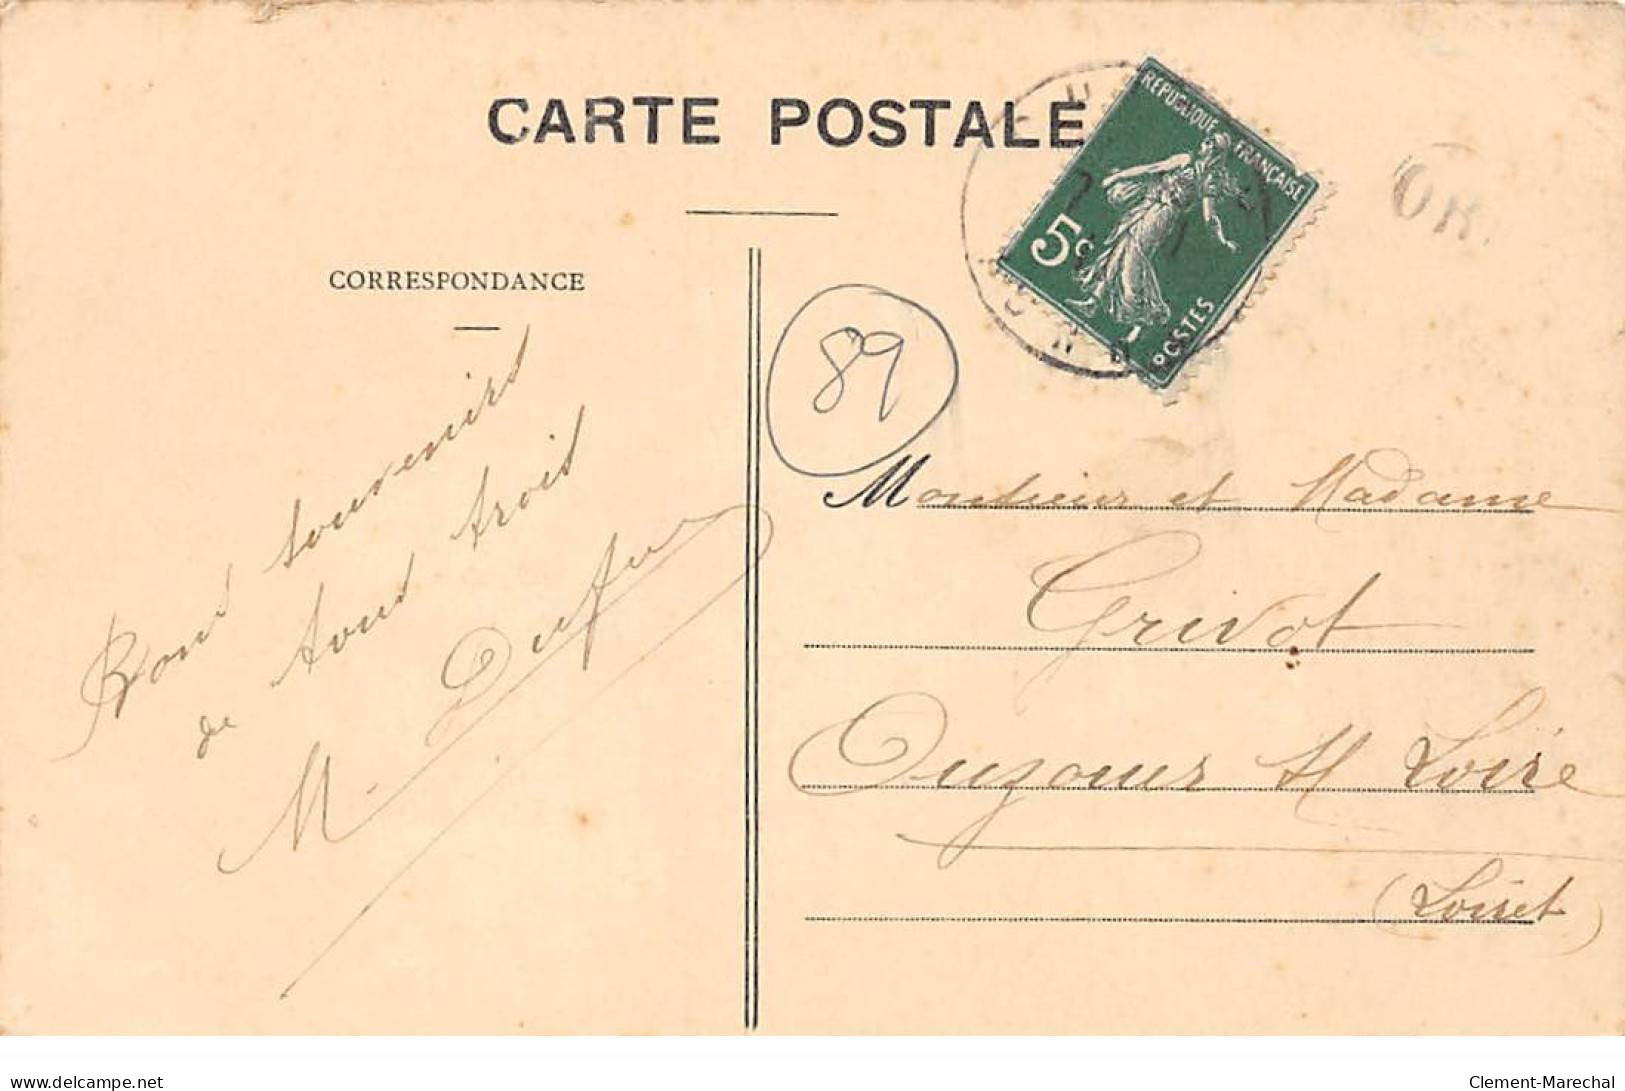 CARTE POSTALE
REPUBLIQUE FRANÇAISE
5c
POSTES
OR
CORRESPONDANCE
89
Bons souvenirs
de tous trois
M.
Monsieur et Madame
Grivot
Ouzouer s/ Loire
(Loiret)
delcampe.net
Clement-Marechal